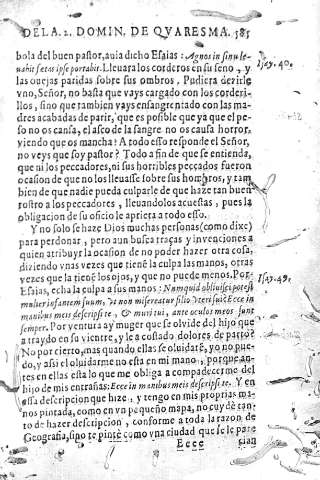 DE LA. 2. DOMIN. DE QVARESMA. 585
bola del buen pastor, auia dicho Esaias: Agnos in sinu le-
uabit fœtas ipse portabit. Lleuara los corderos en su seno, y
Isay. 40.
las ouejas paridas sobre sus ombros, Pudiera dezirle
vno, Señor, no basta que vays cargado con los corderi-
llos, sino que tambien vays ensangrentado con las ma-
dres acabadas de parir, que es posible que ya que el pe-
so no os cansa, el asco de la sangre no os causa horror,
viendo que os mancha? A todo esso responde el Señor,
no veys que soy pastor? Todo a fin de que se entienda,
que ni los peccadores, ni sus horribles peccados fueron
ocasion de que no los lleuasse sobre sus hombros, y tam
bien de que nadie pueda culparle de que haze tan buen
rostro a los peccadores, lleuandolos acuestas, pues la
obligacion de su oficio le aprieta a todo esso.
Y no solo se haze Dios muchas personas (como dixe)
para perdonar, pero aun busca traças y inuenciones a
quien atribuyr la ocasion de no poder hazer otra cosa,
diziendo vnas vezes que tiene la culpa las manos, otras
vezes que la tienē los ojos, y que no puede menos. Por-
Esaias, echa la culpa a sus manos: Numquid obliuisci potest
Isay. 49.
mulier infantem suum, vt non misereatur filio vteri sui? Ecce in
manibus meis descripsi te, & muri tui, ante oculos meos sunt
semper. Por ventura ay muger que se oluide del hijo que
a traydo en su vientre, y le a costado dolores de parto?
No por cierto, mas quando ella se oluidare, yo no pue-
do, y assi el oluidarme no està en mi mano, porque an-
tes en ellas està lo que me obliga a compadecerme del
hijo de mis entrañas: Ecce in manibus meis descripsi te. Y en
essa descripcion que hize, y tengo en mis proprias ma-
nos pintada, como en vn pequeño mapa, no cuydè tan-
to de hazer descripcion, conforme a toda la razon de
Geografia, sino te pintè como vna ciudad que se le pare
Ecce cian